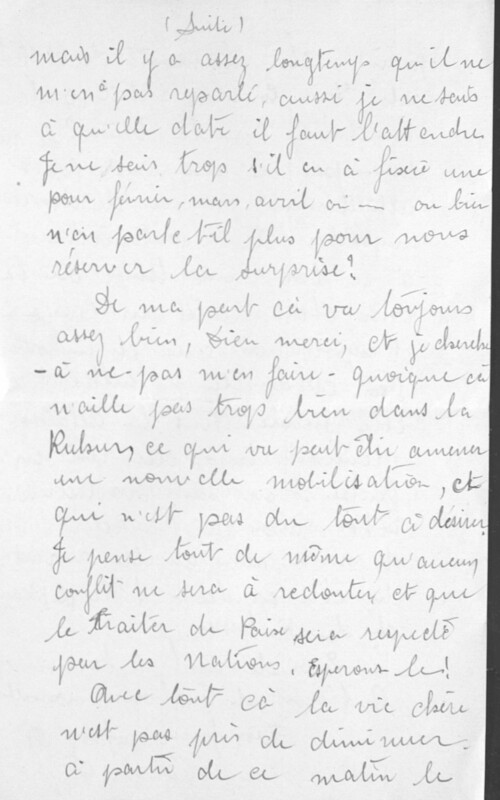 (Suite)
mais il y a assez longtemps qu'il ne
m'en a pas reparlé, aussi je ne sais
à qu'elle date il faut l'attendre.
Je ne sais trop s'il en à fixée une
pour février, mars, avril ou — ou bien
n'en parle t-il plus pour nous
réserver la surprise?
De ma part cà va toujours
assez bien, Dieu merci, et je cherche
- à ne - pas m'en faire - quoique cà
n'aille pas trop bien dans la
Ruhur, ce qui va peut être amener
une nouvelle mobilisation, et
qui n'est pas du tout à désirer.
Je pense tout de même qu'aucun
conflit ne sera à redouter, et que
le Traiter de Paise sera respecté
par les Nations. Esperons le!
Avec tout cà la vie chère
n'est pas près de diminuer.
à partir de ce matin le